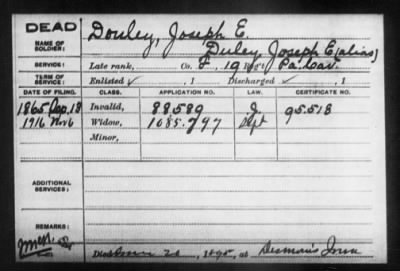 DEAD
NAME OF SOLDIER: Douley, Joseph E.
Duley, Joseph E (alias)
SERVICE: Late rank, Co. F, 19 Reg't Pa. Cav.
TERM OF SERVICE: Enlisted , 1 Discharged , 1
DATE OF FILING. CLASS. APPLICATION NO. LAW. CERTIFICATE NO.
1865 18 Invalid, 88589 95.518
1916 Nov 6 Widow, 1085.797 Sept
Minor,
ADDITIONAL SERVICES:
REMARKS:
Died 20, 1895, at